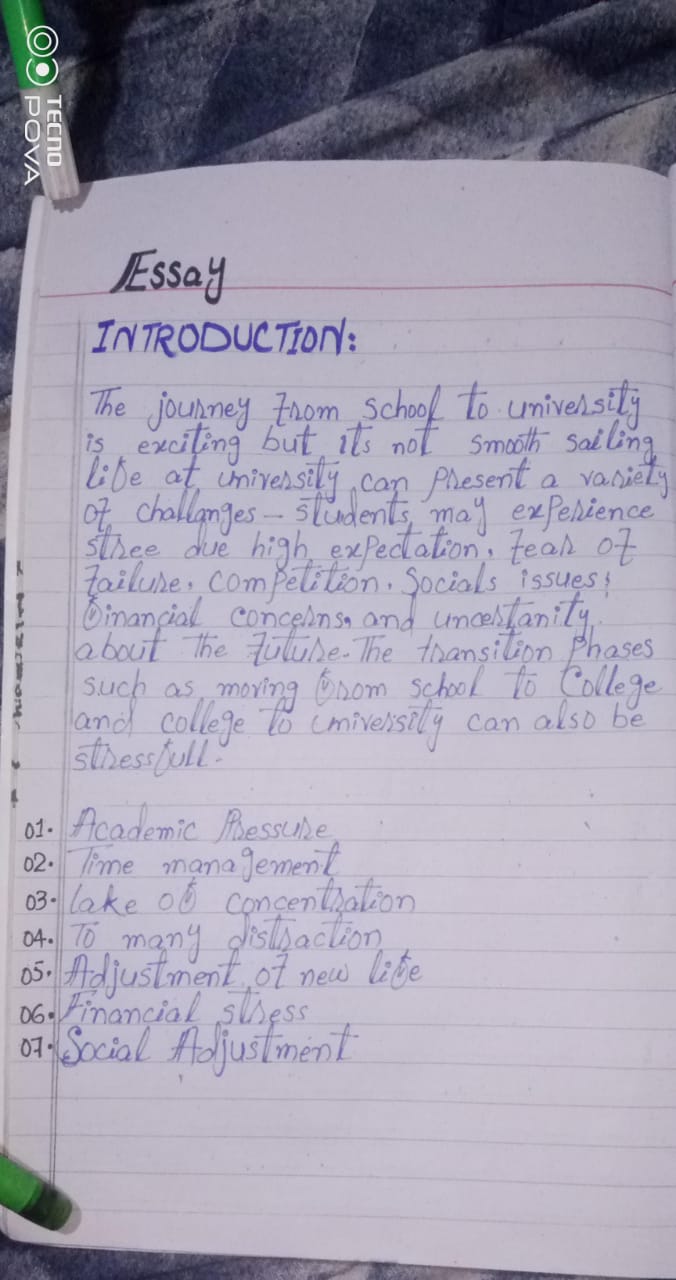 TECNO
POVA
Essay
INTRODUCTION:
The journey from school to university
is exciting but its not smooth sailing
life at university can present a variety
of challanges - students may experience
stree due high expectation, fear of
failure, competition, Socials issues,
financial concerns, and uncertanity
about the future. The transition phases
such as moving from school to College
and college to university can also be
stressfull.
01. Academic Pressure
02. Time management
03. lake of concentration
04. To many distraction
05. Adjustment of new life
06. Financial stress
07. Social Adjustment